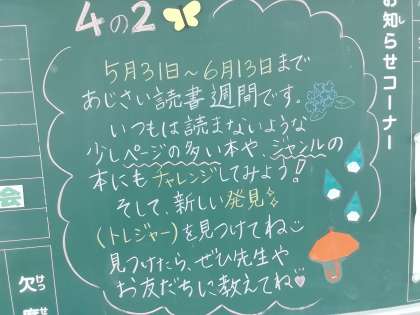 4の2
5月31日～6月13日まで
あじさい読書週間です。
いつもは読まないような
少しページの多い本や、ジャンルの
本にもチャレンジしてみよう!
そして、新しい発見
(トレジャー)を見つけてね
見つけたら、ぜひ先生や
お友だちに教えてね♡
お知らせコーナー
会
欠席
けっせき